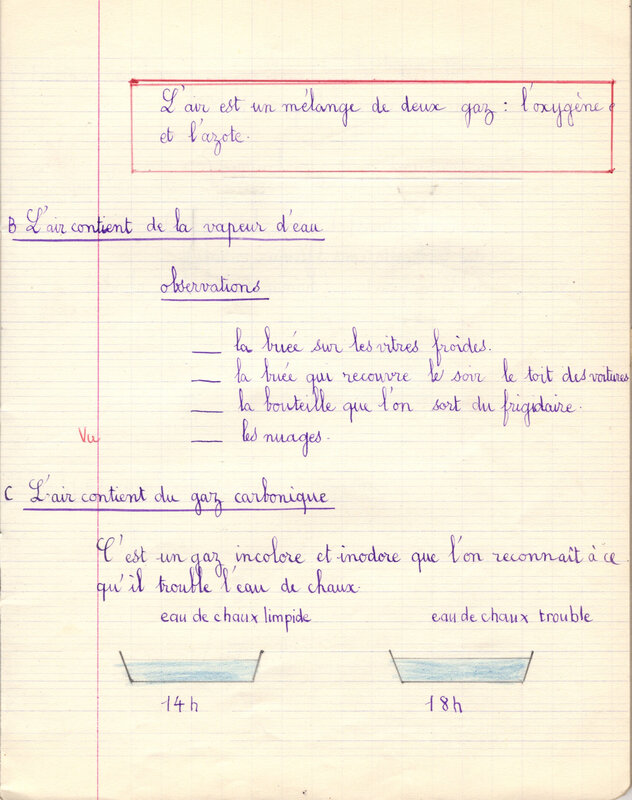 L'air est un mélange de deux gaz : l'oxygène
et l'azote.
B L'air contient de la vapeur d'eau
observations
— la buée sur les vitres froides.
— la buée qui recouvre le soir le toit des voitures
— la bouteille que l'on sort du frigidaire.
Vu — les nuages.
C L'air contient du gaz carbonique
C'est un gaz incolore et inodore que l'on reconnaît à ce
qu'il trouble l'eau de chaux.
eau de chaux limpide eau de chaux trouble
14h 18h